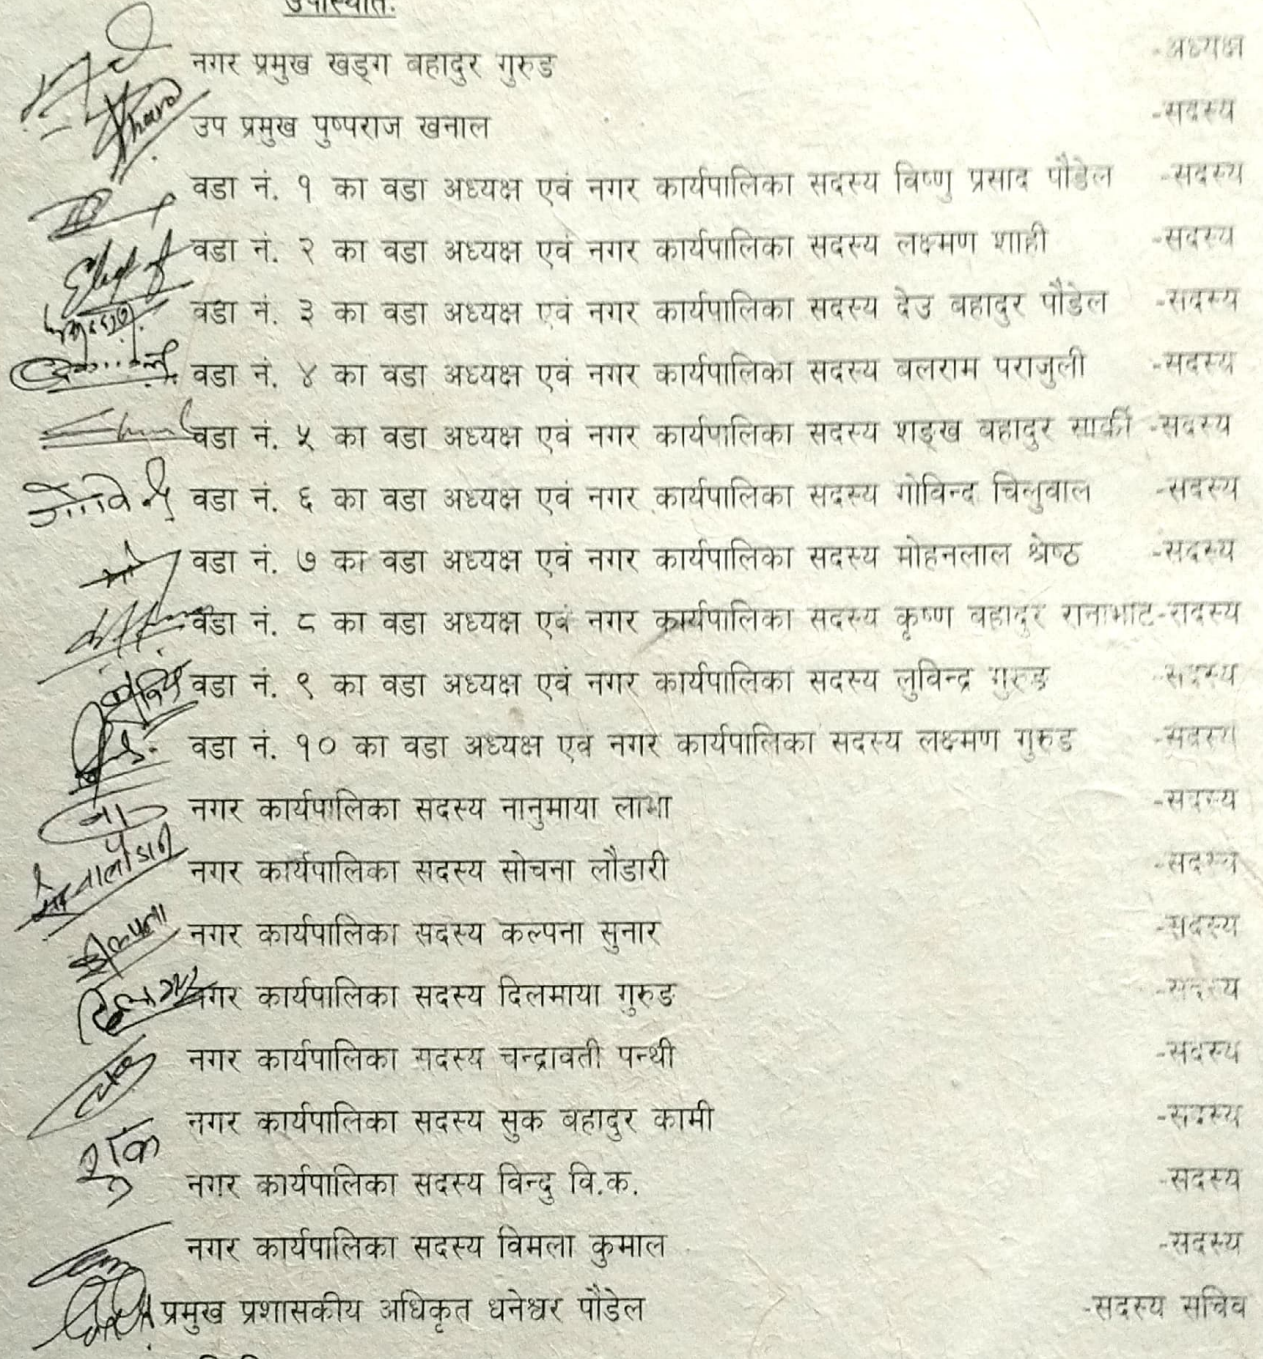 उपस्थितिः
नगर प्रमुख खड्ग बहादुर गुरुङ -अध्यक्ष
उप प्रमुख पुष्पराज खनाल -सदस्य
वडा नं. १ का वडा अध्यक्ष एवं नगर कार्यपालिका सदस्य विष्णु प्रसाद पौडेल -सदस्य
वडा नं. २ का वडा अध्यक्ष एवं नगर कार्यपालिका सदस्य लक्ष्मण शाही -सदस्य
वडा नं. ३ का वडा अध्यक्ष एवं नगर कार्यपालिका सदस्य देउ बहादुर पौडेल -सदस्य
वडा नं. ४ का वडा अध्यक्ष एवं नगर कार्यपालिका सदस्य बलराम पराजुली -सदस्य
वडा नं. ५ का वडा अध्यक्ष एवं नगर कार्यपालिका सदस्य शङ्ख बहादुर सार्की -सदस्य
गोविन्द वडा नं. ६ का वडा अध्यक्ष एवं नगर कार्यपालिका सदस्य गोविन्द चिलुवाल -सदस्य
वडा नं. ७ का वडा अध्यक्ष एवं नगर कार्यपालिका सदस्य मोहनलाल श्रेष्ठ -सदस्य
वडा नं. ८ का वडा अध्यक्ष एवं नगर कार्यपालिका सदस्य कृष्ण बहादुर रानाभाट-सदस्य
वडा नं. ९ का वडा अध्यक्ष एवं नगर कार्यपालिका सदस्य लुविन्द्र गुरुङ -सदस्य
वडा नं. १० का वडा अध्यक्ष एवं नगर कार्यपालिका सदस्य लक्ष्मण गुरुङ -सदस्य
नगर कार्यपालिका सदस्य नानुमाया लामा -सदस्य
नगर कार्यपालिका सदस्य सोचना लौडारी -सदस्य
कल्पना नगर कार्यपालिका सदस्य कल्पना सुनार -सदस्य
नगर कार्यपालिका सदस्य दिलमाया गुरुङ -सदस्य
नगर कार्यपालिका सदस्य चन्द्रावती पन्थी -सदस्य
नगर कार्यपालिका सदस्य सुक बहादुर कामी -सदस्य
नगर कार्यपालिका सदस्य विन्दु वि.क. -सदस्य
नगर कार्यपालिका सदस्य विमला कुमाल -सदस्य
प्रमुख प्रशासकीय अधिकृत धनेश्वर पौडेल -सदस्य सचिव